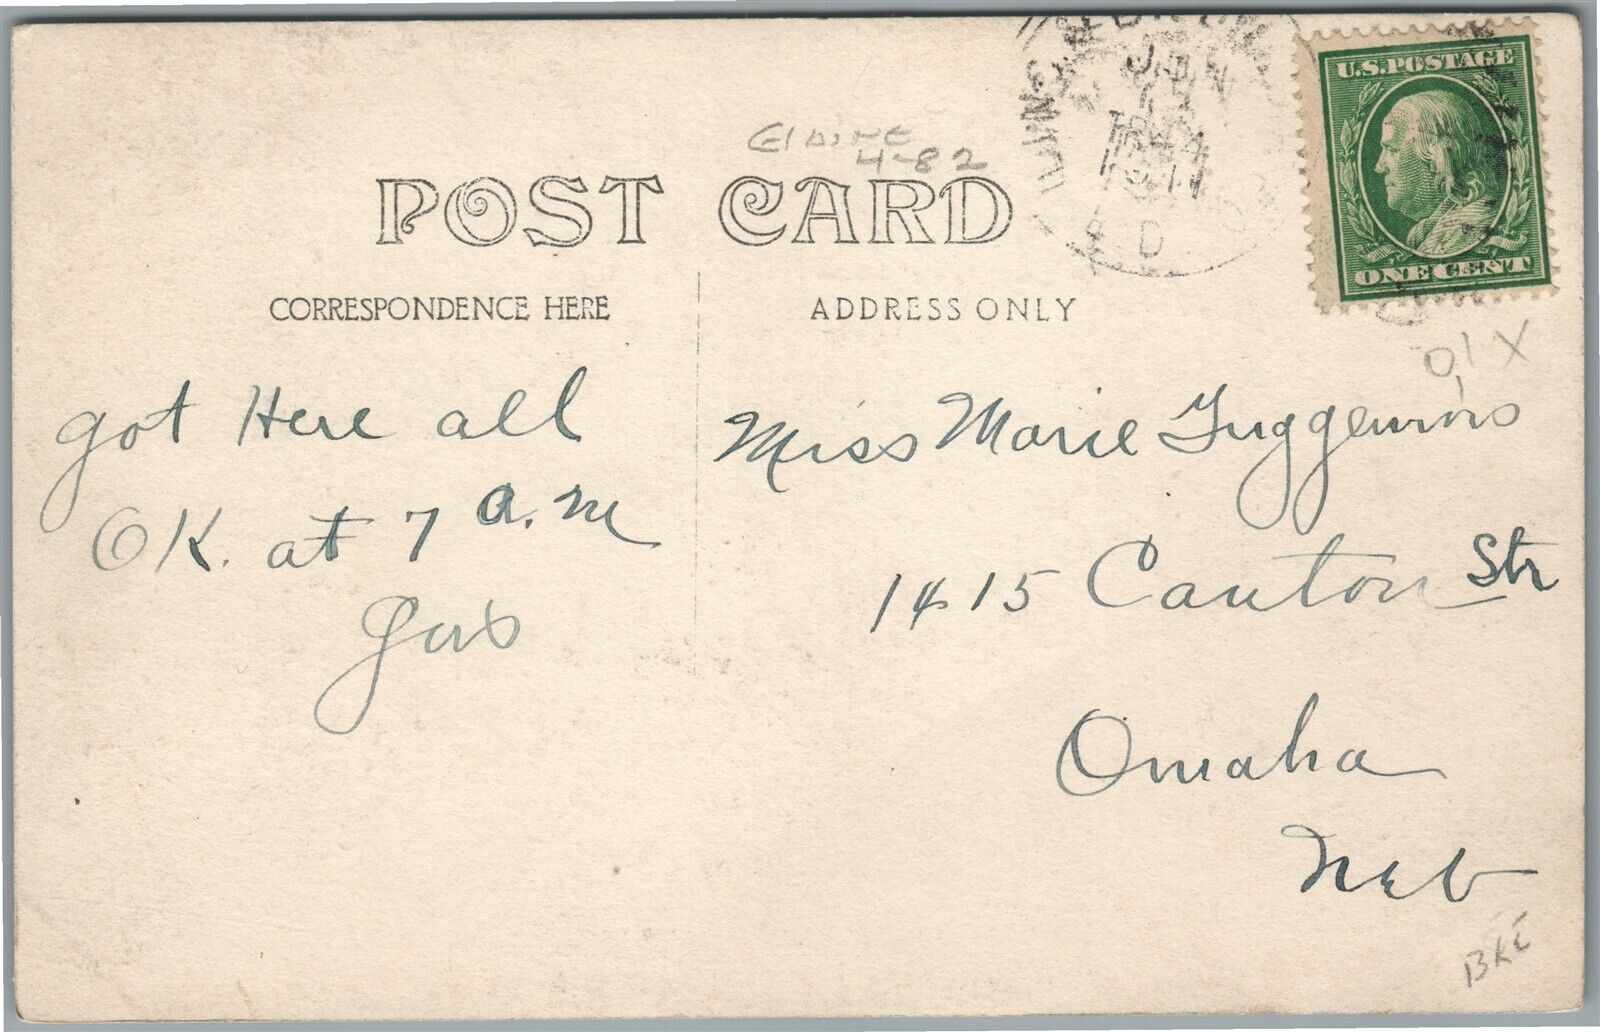 Elaine
4-82
POST CARD
U.S. POSTAGE
ONE CENT
CORRESPONDENCE HERE
ADDRESS ONLY
JUN
D
got Here all
OK. at 7 a.m
Gus
Miss Marie
1415 Canton Str
Omaha
Neb
BKE